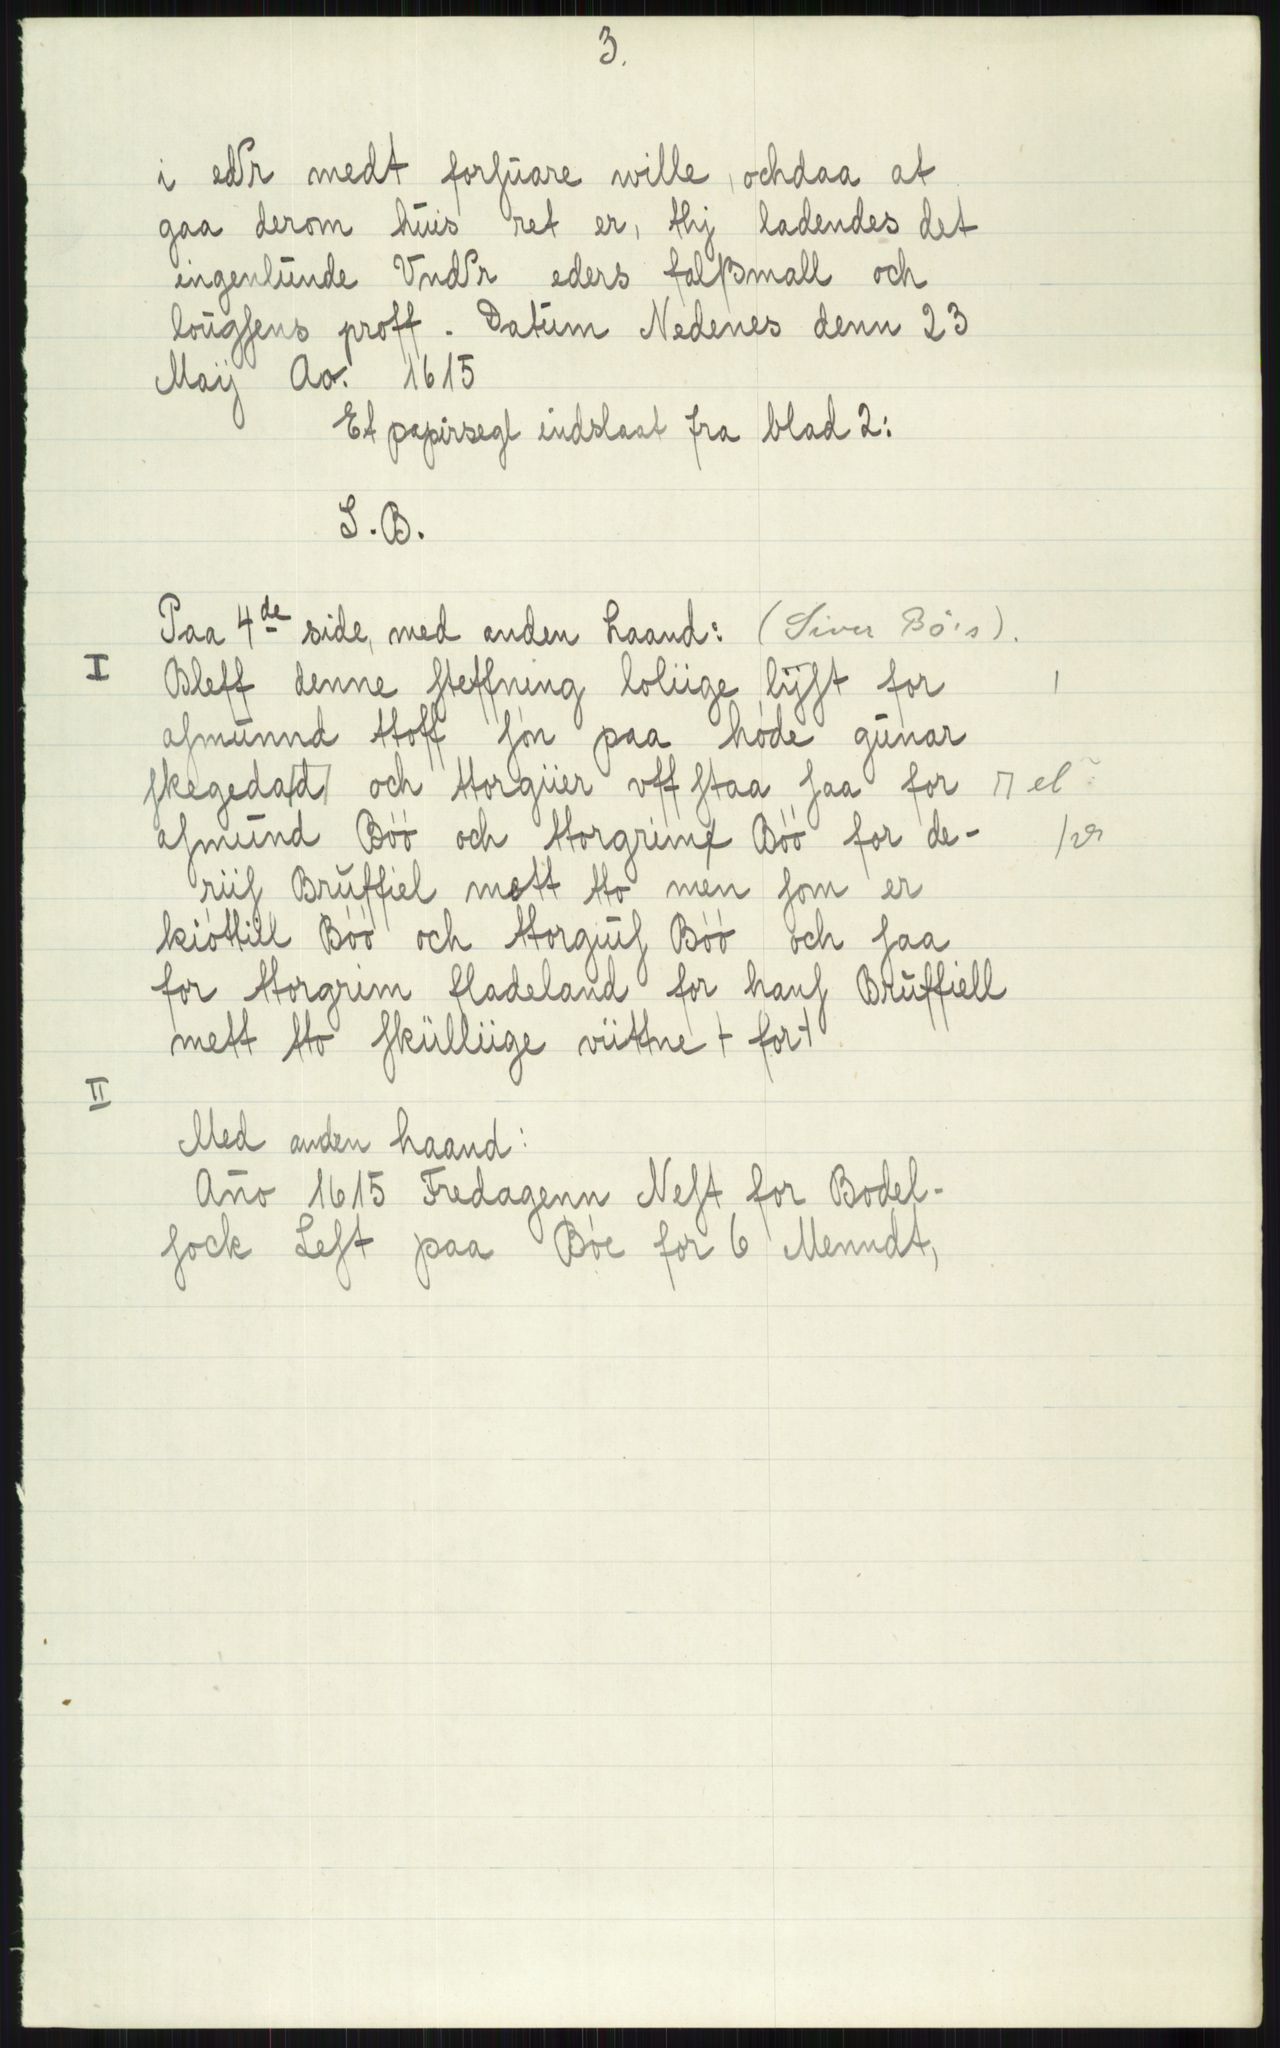 3.
i edr medt forſuare wille, ochdaa at
gaa derom huis ret er, thj ladendes det
ingenlunde Vndr eders falßmall och
lougſens proff. Datum Nedenes denn 23
Maij Ao. 1615
Et papirsegl indslaat fra blad 2:
S. B.
Paa 4de side, med anden haand: (Siver Bö's).
I Bleff denne ſteffning loliige lijſt for
aſmunnd ttoff ſön paa höde gunar
ſkegeda[d] och ttorgiier vff ſtaa ſaa for el
aſmund Böö och ttorgrim Böö for de-
riiſ Bruffiel mett tto men ſom er
kiöttill Böö och ttorgiuſ Böö och ſaa
for ttorgrim fladeland for hanſ Bruffiell
mett tto ſkülliige viittne + for+
II
Med anden haand:
Año 1615 Fredagenn Neſt for Bodel-
ſock Leſt paa Böe for 6 Menndt,